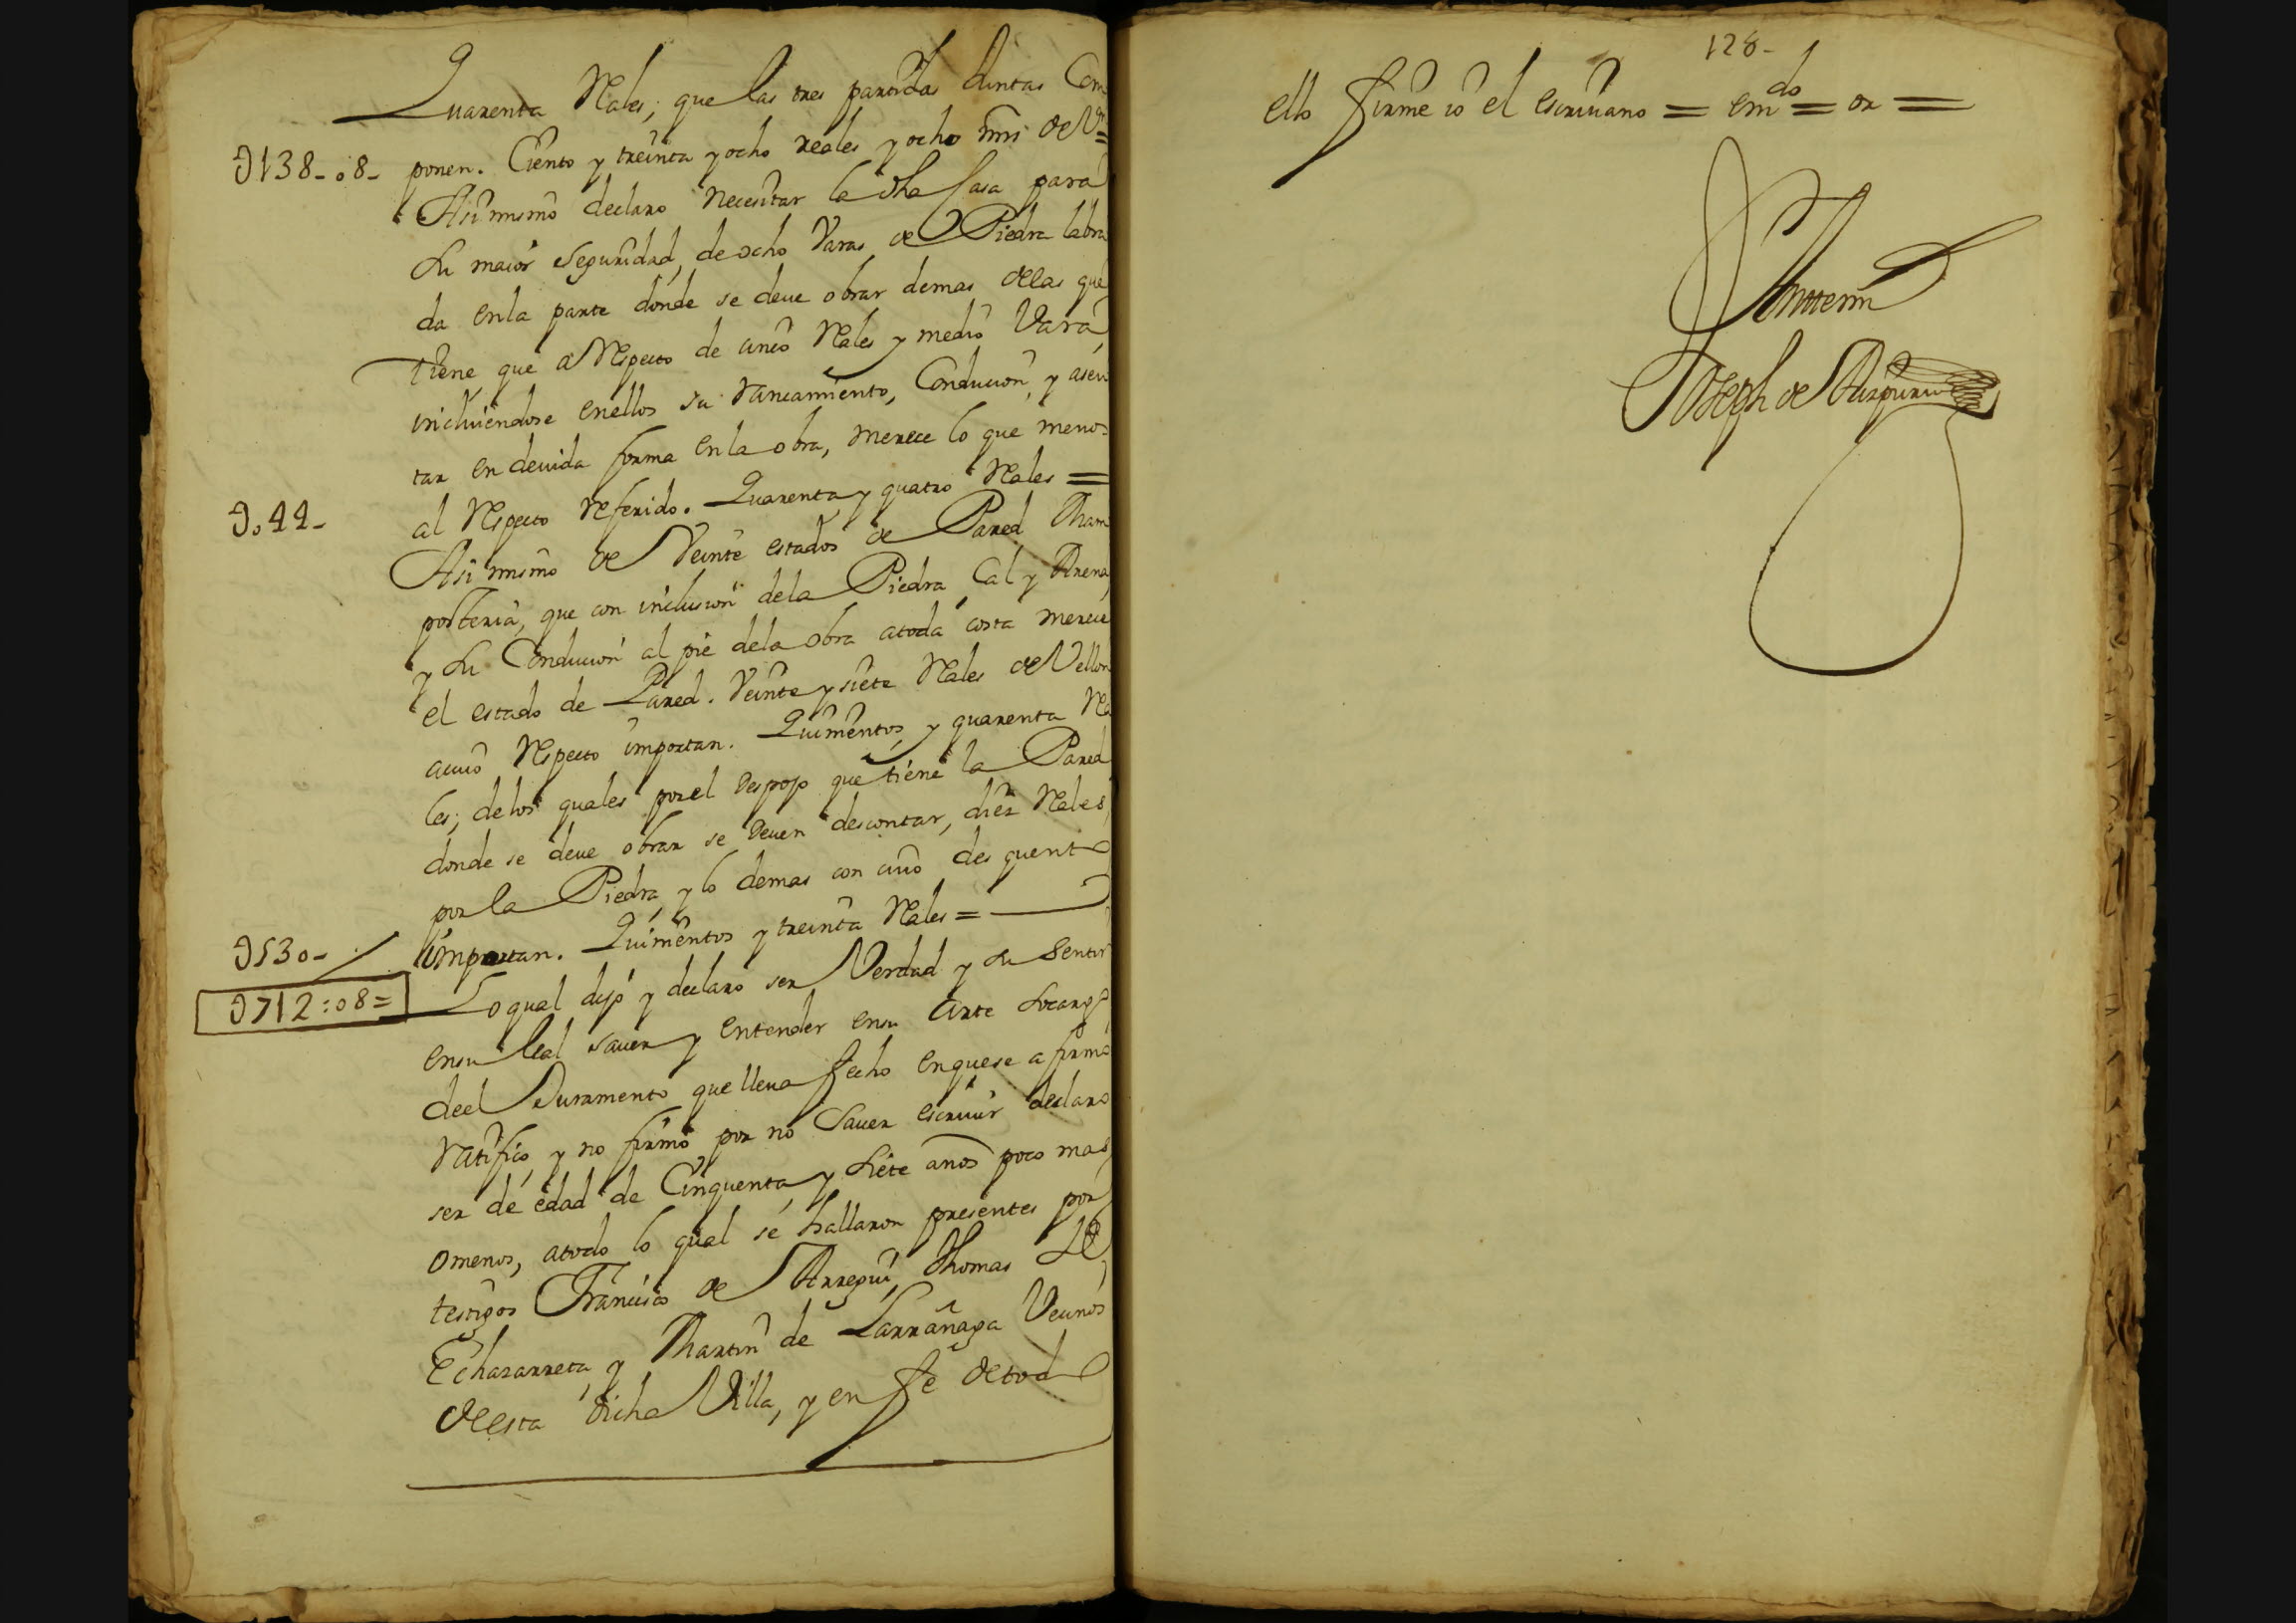 Quarenta Rales; que las tres partidas Juntas Com
U138-08- ponen. Ciento y treinta y ocho reales y ocho mrs de Vn=
Asi mismo declaro necesitar la dha Casa para
Su maior Seguridad, de ocho Varas de Piedra labra
da en la parte donde se deue obrar demas de las que
tiene que a Respecto de cinco Rales y medio Vara,
incluiendose en ellos su rancamiento, Conducion, y asen
tar en deuida forma en la obra, merece lo que menos
U044- al Respecto referido. Quarenta y quatro Rales =
Asi mismo de Veinte estados de Pared Mam
posteria, que con inclusion de la Piedra, Cal y Arena,
y Su Conducion al pie de la obra a toda costa merece
el estado de Pared. Veinte y siete Rales de Vellon
a cuio Respecto importan. Quinientos, y quarenta Ra
les; de los quales por el Despojo que tiene la Pared
donde se deue obrar se Deuen descontar, diez Rales,
por la Piedra, y lo demas con cuio desquento
U530- importan. Quinientos y treinta Rales =
U712:08= Lo qual dijo y declaro ser Verdad y Su Sentir
en su leal sauer y entender en su Arte so cargo
de el Juramento que lleua fecho en que se afirmo
ratifico, y no firmo por no Sauer escriuir declaro
ser de edad de Cinquenta, y Siete años poco mas
o menos, a todo lo qual se hallaron presentes por
testigos Francisco de Arregui, Thomas de
Echazarreta, y Martin de Larrañaga Vecinos
de esta dicha Villa, y en fe de todo
128-
ello firme io el escriuano = emdo = or =
Ante mi
Joseph de Aizpuru